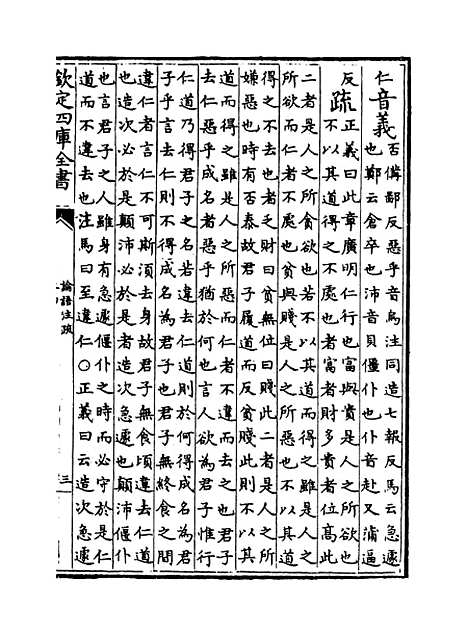 仁 音義 否備鄙反惡乎音烏注同造七報反馬云急遽
也鄭云倉卒也沛音貝僵仆也仆音赴又蒲逼
反 疏 正義曰此章廣明仁行也富與貴是人之所欲也
不以其道得之不處也者富者財多貴者位高此
二者是人之所貪欲也若不以其道而得之雖是人之
所欲而仁者不處也貧與賤是人之所惡也不以其道
得之不去也者乏財曰貧無位曰賤此二者是人之所
嫌惡也時有否泰故君子履道而反貧賤此則不以其
道而得之雖是人之所惡而仁者不違而去之也君子
去仁惡乎成名者惡乎猶於何也言人欲為君子惟行
仁道乃得君子之名若違去仁道則於何得成名為君
子乎言去仁則不得成名為君子也君子無終食之間
違仁者言仁不可斯須去身故君子無食頃違去仁道
也造次必於是顛沛必於是者造次急遽也顛沛偃仆
也言君子之人雖身有急遽偃仆之時而必守於是仁
道而不違去也注馬曰至違仁○正義曰云造次急遽
欽定四庫全書
論語注疏
三